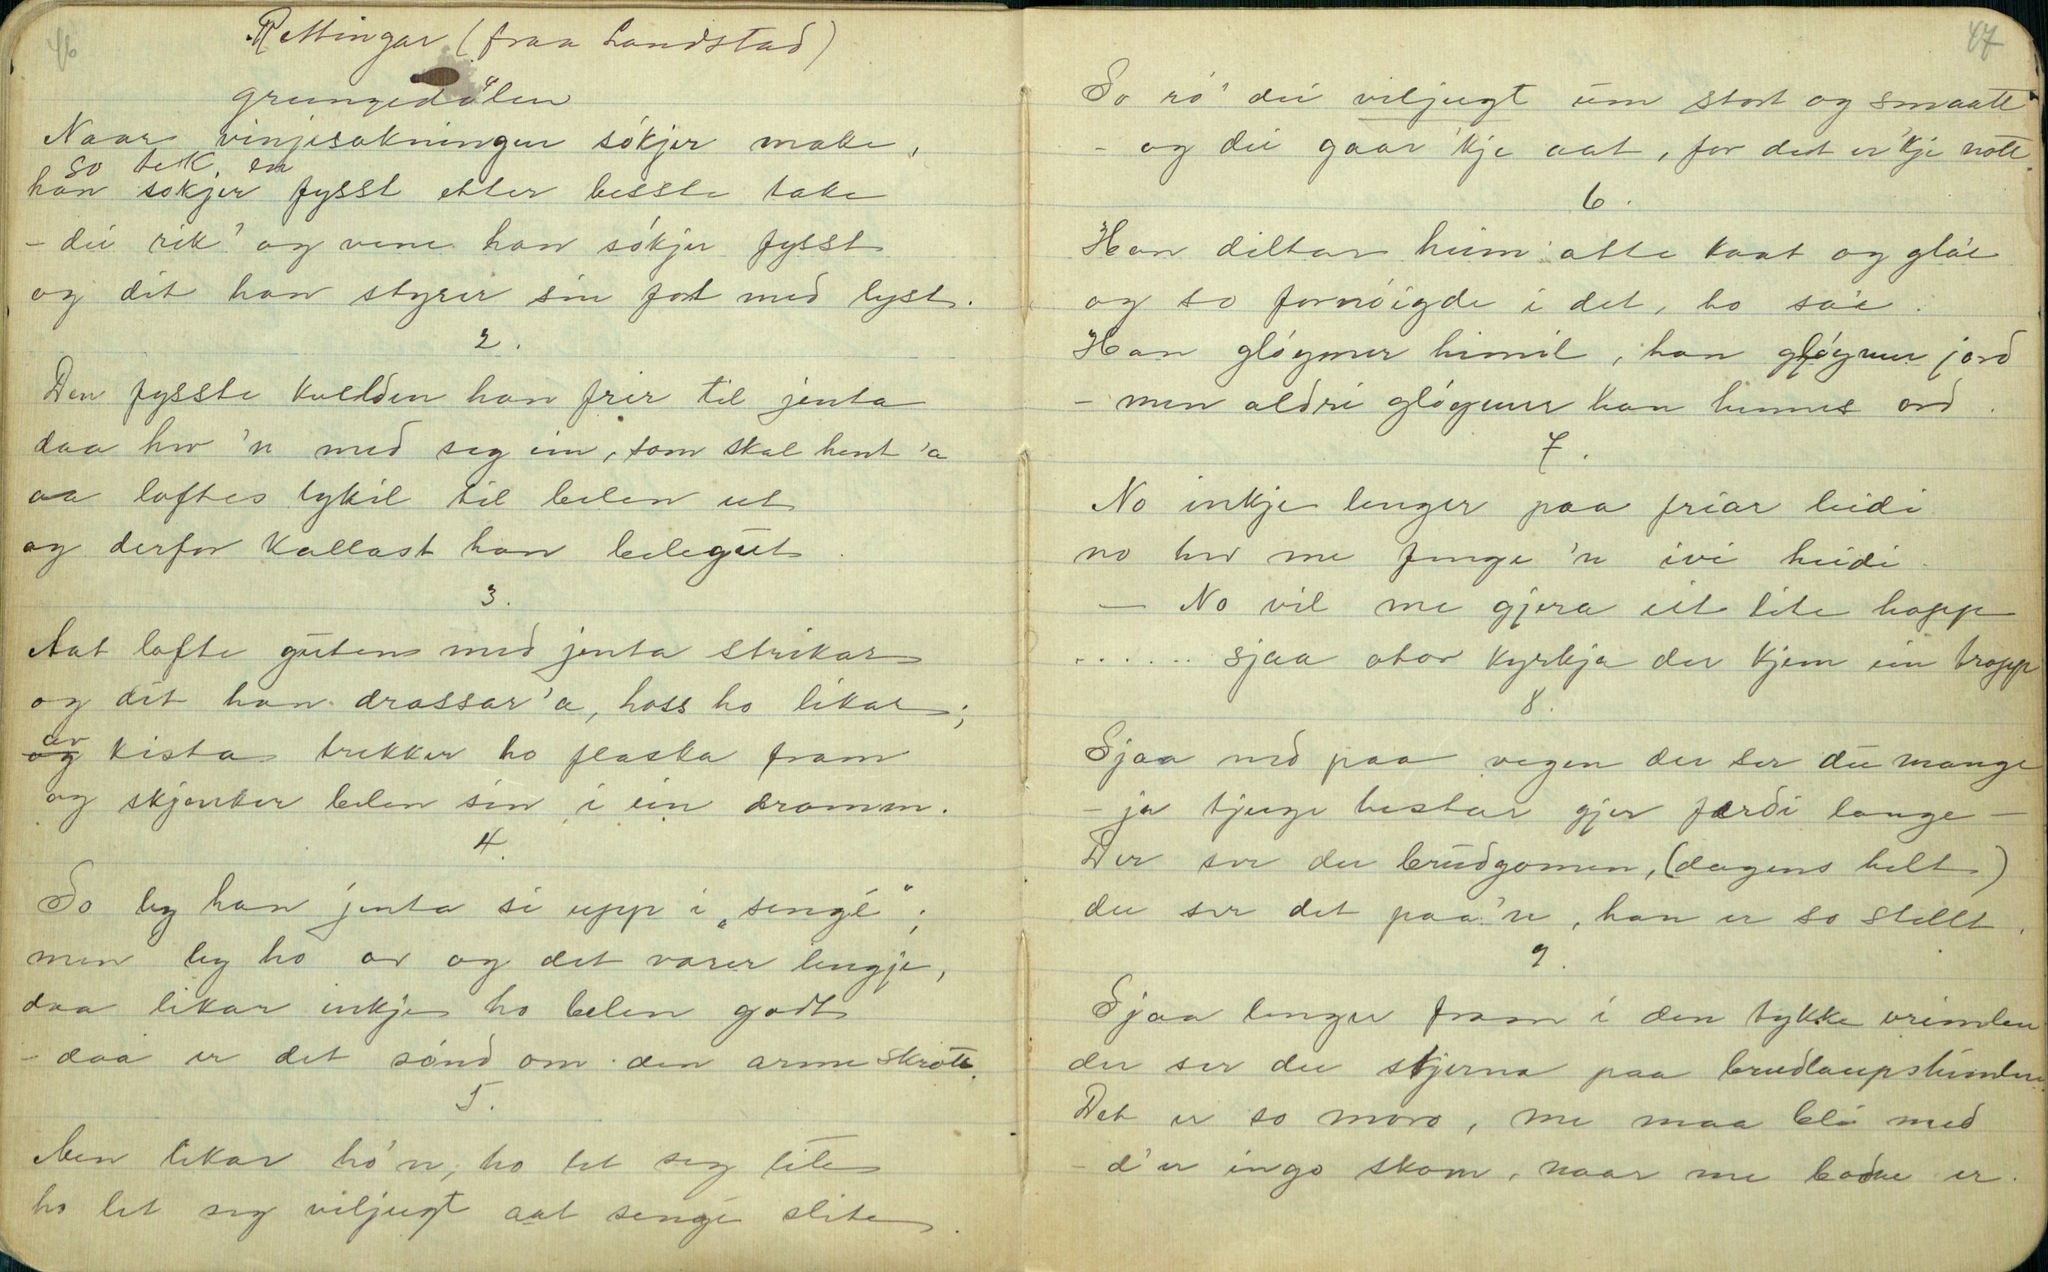 46
Rettingar (fraa Landstad)
grungedølen
Naar vinjesokningen søkjer make,
so tek en
han søkjer fysst etter beste take
- dei rik' og vene han søkjer fysst
og dit han styrer sin fot med lyst.
2.
Den fysste kvelden han frir til jenta
daa hev 'n med seg ein, som skal hent 'a
aa loftes lykil til belen ut
og derfor kallast han belegut.
3.
Aat lofte guten med jenta strikar
og dit han drassar 'a, hoss ho likar;
av
og kista trekker ho flaska fram
og skjenker belen sin i ein dramm.
4.
So leg han jenta si upp i „sengé";
men leg ho av og det varer lengje,
daa likar inkje ho belen godt
- daa er det sønd om den arme skrott.
5.
Men likar ho 'n, ho let seg lite
ho let seg viljugt aat sengi slite.
47
So rø' dei viljugt um stort og smaatt
- og dei gaar 'kje aat, for det er 'kje nott.
6.
Han diltar heim atte kaat og gla'e
og so fornøigde i det, ho sa'e.
Han gløymer himil, han gløymer jord
- men aldri gløymer han hennes ord.
7.
No inkje lenger paa friar leidi
no hev me fenge 'n ivi heidi.
- No vil me gjera eit lite hopp
...... sjaa otor kyrkja der kjem ein tropp
8.
Sjaa ned paa vegen der ser du mange
- ja tjuge hestar gjer færdi lange -
Der ser du brudgomen, (dagens helt)
du ser det paa 'n, han er so stellt.
9
Sjaa lenger fram i den tykke vrimlen
der ser du stjerna paa brudlaupshimlen.
Det er so moro, me maa bli med
- d'er ingo skam, naar me bodne er.